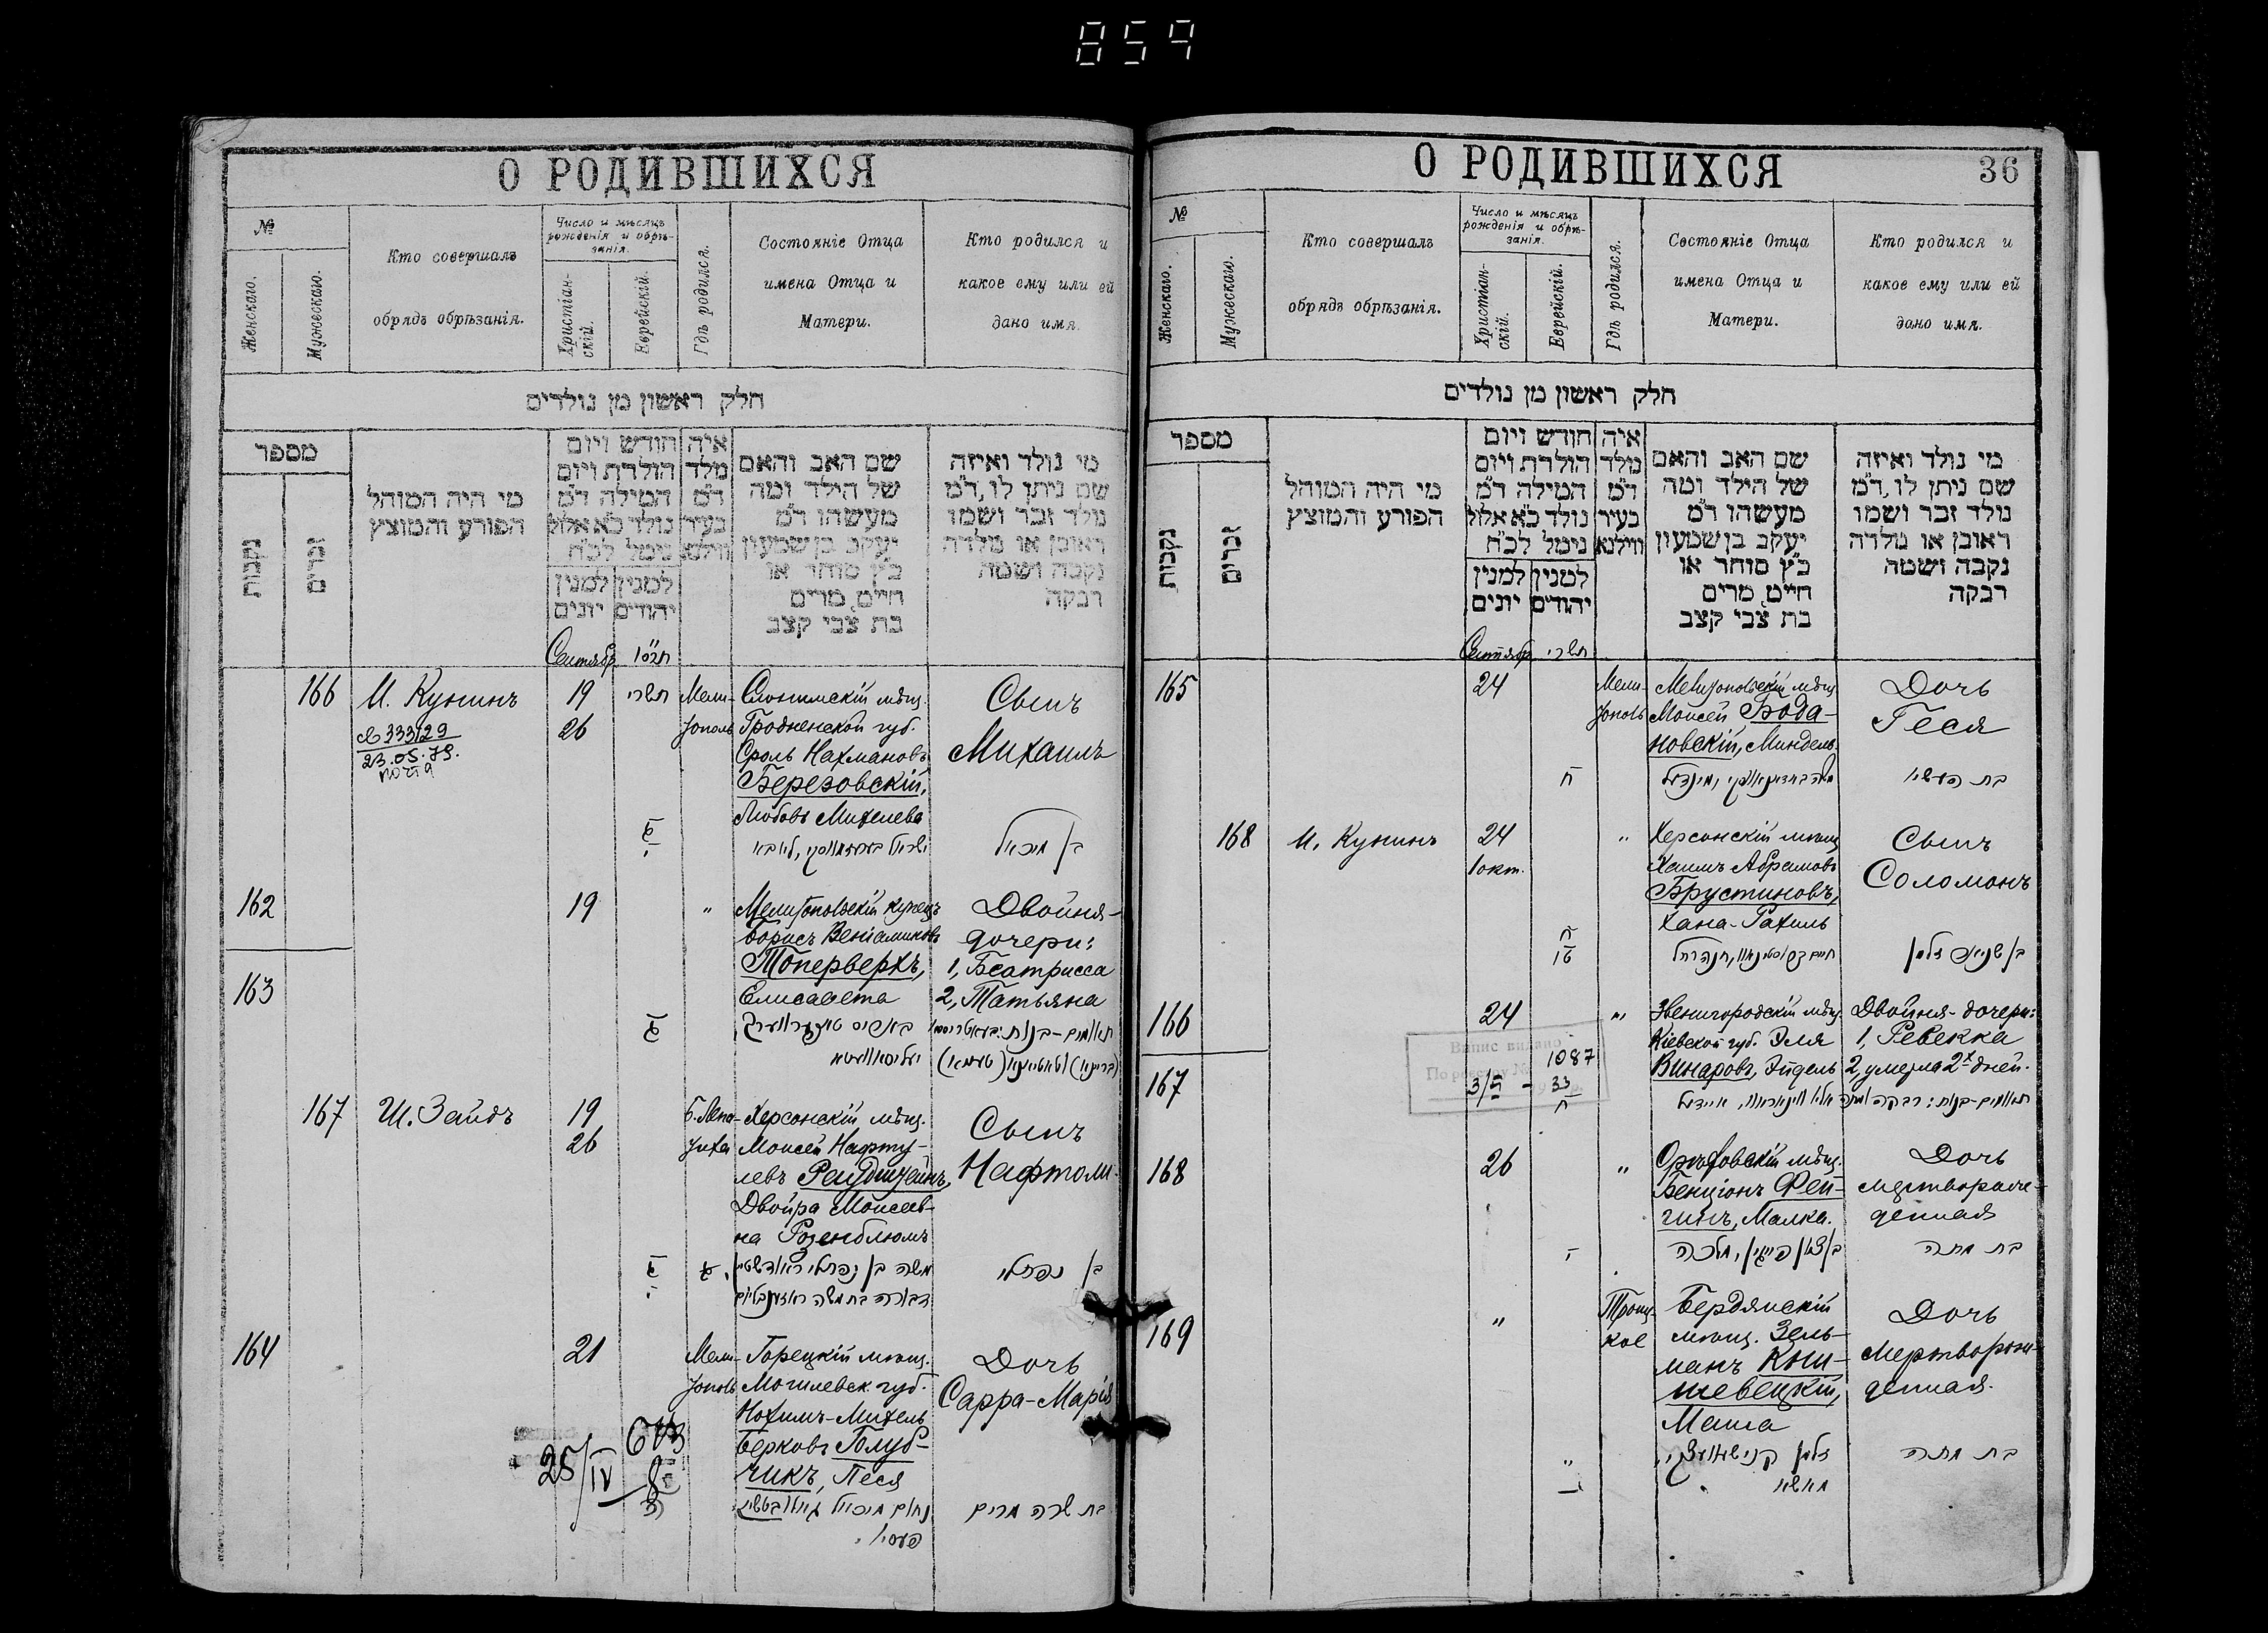 859
О РОДИВШИХСЯ
№
Женскаго.
Мужескаго.
Кто совершалъ
обрядъ обрѣзанія.
Число и мѣсяцъ
рожденія и обрѣ-
занія.
Христіан-
скій.
Еврейскій.
Гдѣ родился.
Состояніе Отца
имена Отца и
Матери.
Кто родился и
какое ему или ей
дано имя.
חלק ראשון מן נולדים
מספר
נקבות
זכרים
מי היה המוהל
הפורע והמוצץ
חודש ויום
הולדת ויום
המילה ד"מ
נולד כ"א אלול
נימל לכ"ח
למנין למנין
יהודים יונים
איה
מלד
ד"מ
בעיר
ווילנא
שם האב והאם
של הילד ומה
מעשהו ד"מ
יעקב בן שמעון
כ"ץ סוחר או
חייט, מרים
בת צבי קצב
מי נולד ואיזה
שם ניתן לו, ד"מ
נולד זכר ושמו
ראובן או נולדה
נקבה ושמה
רבקה
Сентябр.
166
И. Кунинъ
333/29
23.05.79.
почта
19
26
תשרי
Мели-
тополь
Слонимскій мѣщ.
Гродненской губ.
Сроль Нахмановъ
Березовскій,
Любовь Михелева
Сынъ
Михаилъ
בן מיכאל
162
163
19
"
Мелитопольскій купецъ
Борисъ Веніаминовъ
Топерверхъ,
Елисавета
Двойня-
дочери:
1, Беатрисса
2, Татьяна
167
Ш. Зайдъ
19
26
Б. Лепа-
тиха
Херсонскій мѣщ.
Моисей Нафту-
левъ Раудштейнъ,
Двойра Моисеев-
на Розенблюмъ
Сынъ
Нафтоли
בן נפתלי
164
21
Мели-
тополь
Горецкій мѣщ.
Могилевск. губ.
Нохимъ-Михель
Берковъ Голуб-
чикъ, Песя
Дочь
Сарра-Марія
בת שרה מרים
25/IV
О РОДИВШИХСЯ
36
№
Женскаго.
Мужескаго.
Кто совершалъ
обрядъ обрѣзанія.
Число и мѣсяцъ
рожденія и обрѣ-
занія.
Христіан-
скій.
Еврейскій.
Гдѣ родился.
Состояніе Отца
имена Отца и
Матери.
Кто родился и
какое ему или ей
дано имя.
חלק ראשון מן נולדים
מספר
נקבות
זכרים
מי היה המוהל
הפורע והמוצץ
חודש ויום
הולדת ויום
המילה ד"מ
נולד כ"א אלול
נימל לכ"ח
למנין למנין
יהודים יונים
איה
מלד
ד"מ
בעיר
ווילנא
שם האב והאם
של הילד ומה
מעשהו ד"מ
יעקב בן שמעון
כ"ץ סוחר או
חייט, מרים
בת צבי קצב
מי נולד ואיזה
שם ניתן לו, ד"מ
נולד זכר ושמו
ראובן או נולדה
נקבה ושמה
רבקה
Сентябр.
תשרי
165
24
Мели-
тополь
Мелитопольскій мѣщ.
Моисей Бода-
новскій, Миндель
Дочь
Геся
168
И. Кунинъ
24
1 окт.
"
Херсонскій мѣщ.
Хаимъ Абрамовъ
Брустиновъ,
Хана-Рахиль
Сынъ
Соломонъ
166
167
24
"
Звенигородскій мѣщ.
Кіевской губ. Эля
Винаровъ, Эйдель
Двойня-дочери:
1, Ревекка
2, умерла 2х дней.
1087
168
26
"
Орѣховскій мѣщ.
Бенціонъ Фей-
гинъ, Малка.
Дочь
мертворож-
денная
בת מתה
169
"
Троиц-
кое
Бердянскій
мѣщ. Зель-
манъ Кни-
шевецкій,
Маша
Дочь
мертворож-
денная.
בת מתה